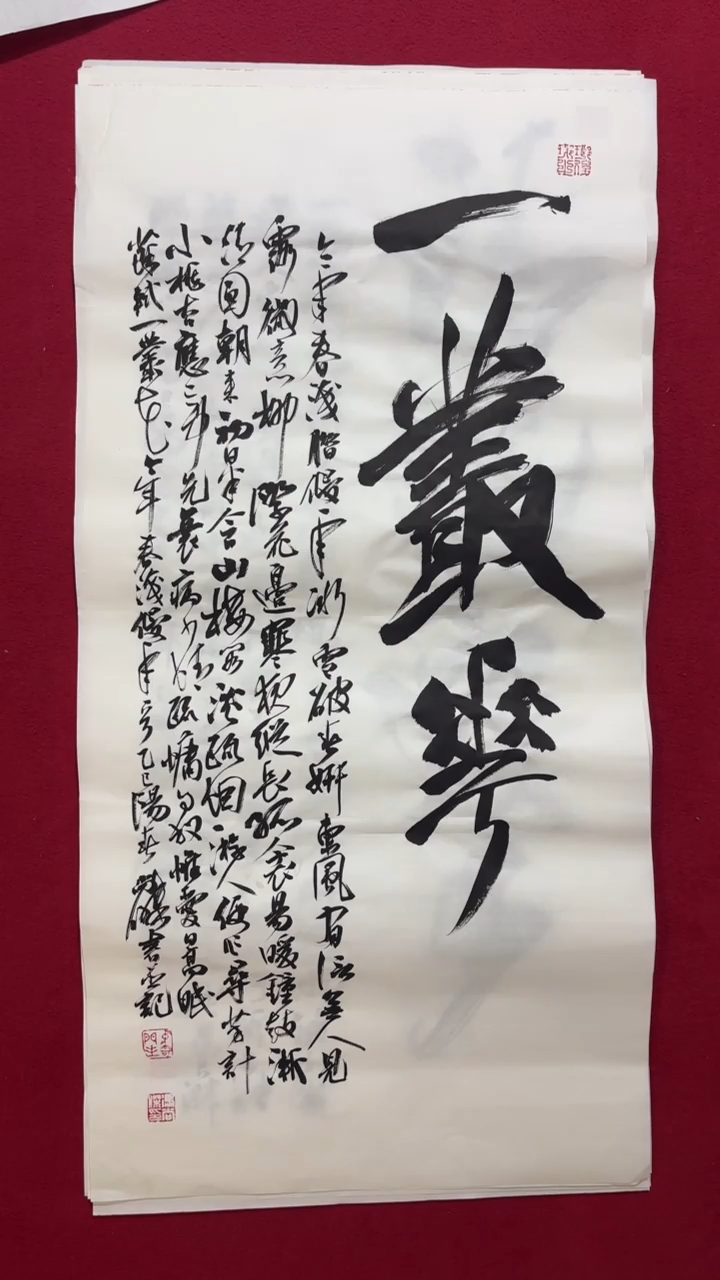 一叢華
今年春淺臘侵年冰雪破春妍東風有信無人見
露微意柳際花邊寒夜縱長孤衾易暖鐘鼓漸
清圓朝來初日半含山樓閣淡疏烟游人便作尋芳計
小桃杏應已爭先衰病少情疏慵自放惟愛日高眠
蘇軾一叢花今年春淺侵年乙巳陽春書並記